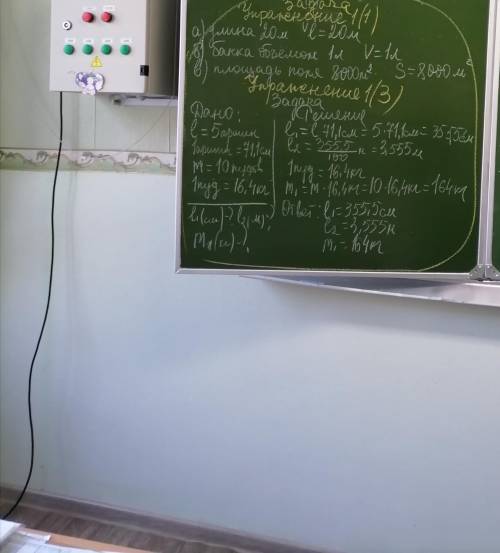 Задача
Упражнение 1(1)
а) длина 20м l=20м
б) банка объемом 1л V=1л
в) площадь поля 8000м² S=8000м²
Упражнение 1(3)
Задача
Дано:
l=5аршин
1аршин=71,1см
m=10пудов
1пуд=16,4кг
l₁(см)-? l₂(м)-?
m₁(кг)-?
Решение
l₁=l·71,1см=5·71,1см=355,5см
l₂=355,5/100 м=3,555м
1пуд=16,4кг
m₁=m·16,4кг=10·16,4кг=164кг
Ответ: l₁=355,5см
l₂=3,555м
m₁=164кг